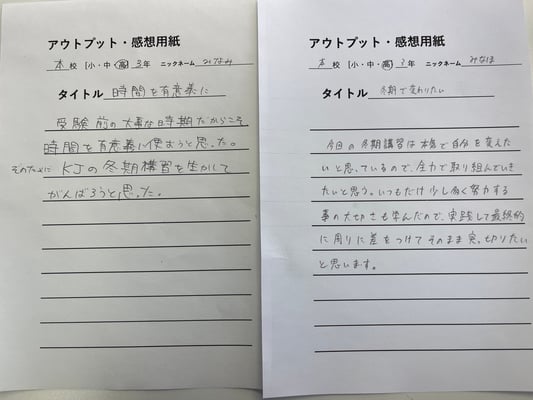 アウトプット・感想用紙
本 校 [小・中・高] 3年 ニックネーム いなみ
タイトル 時間を有意義に
受験前の大事な時期だからこそ
時間を有意義に使おうと思った。
そのために KJの冬期講習を生かして
がんばろうと思った。
アウトプット・感想用紙
本 校 [小・中・高] 年 ニックネーム みなほ
タイトル 冬期で変わりたい
今回の冬期講習は本気で自分を変えた
いと思っているので、全力で取り組んでいき
たいと思う。いつもだけ少し多く努力する
事の大切さも学んだので、実践して最終的
に周りに差をつけてそのまま突っ切りたい
と思います。